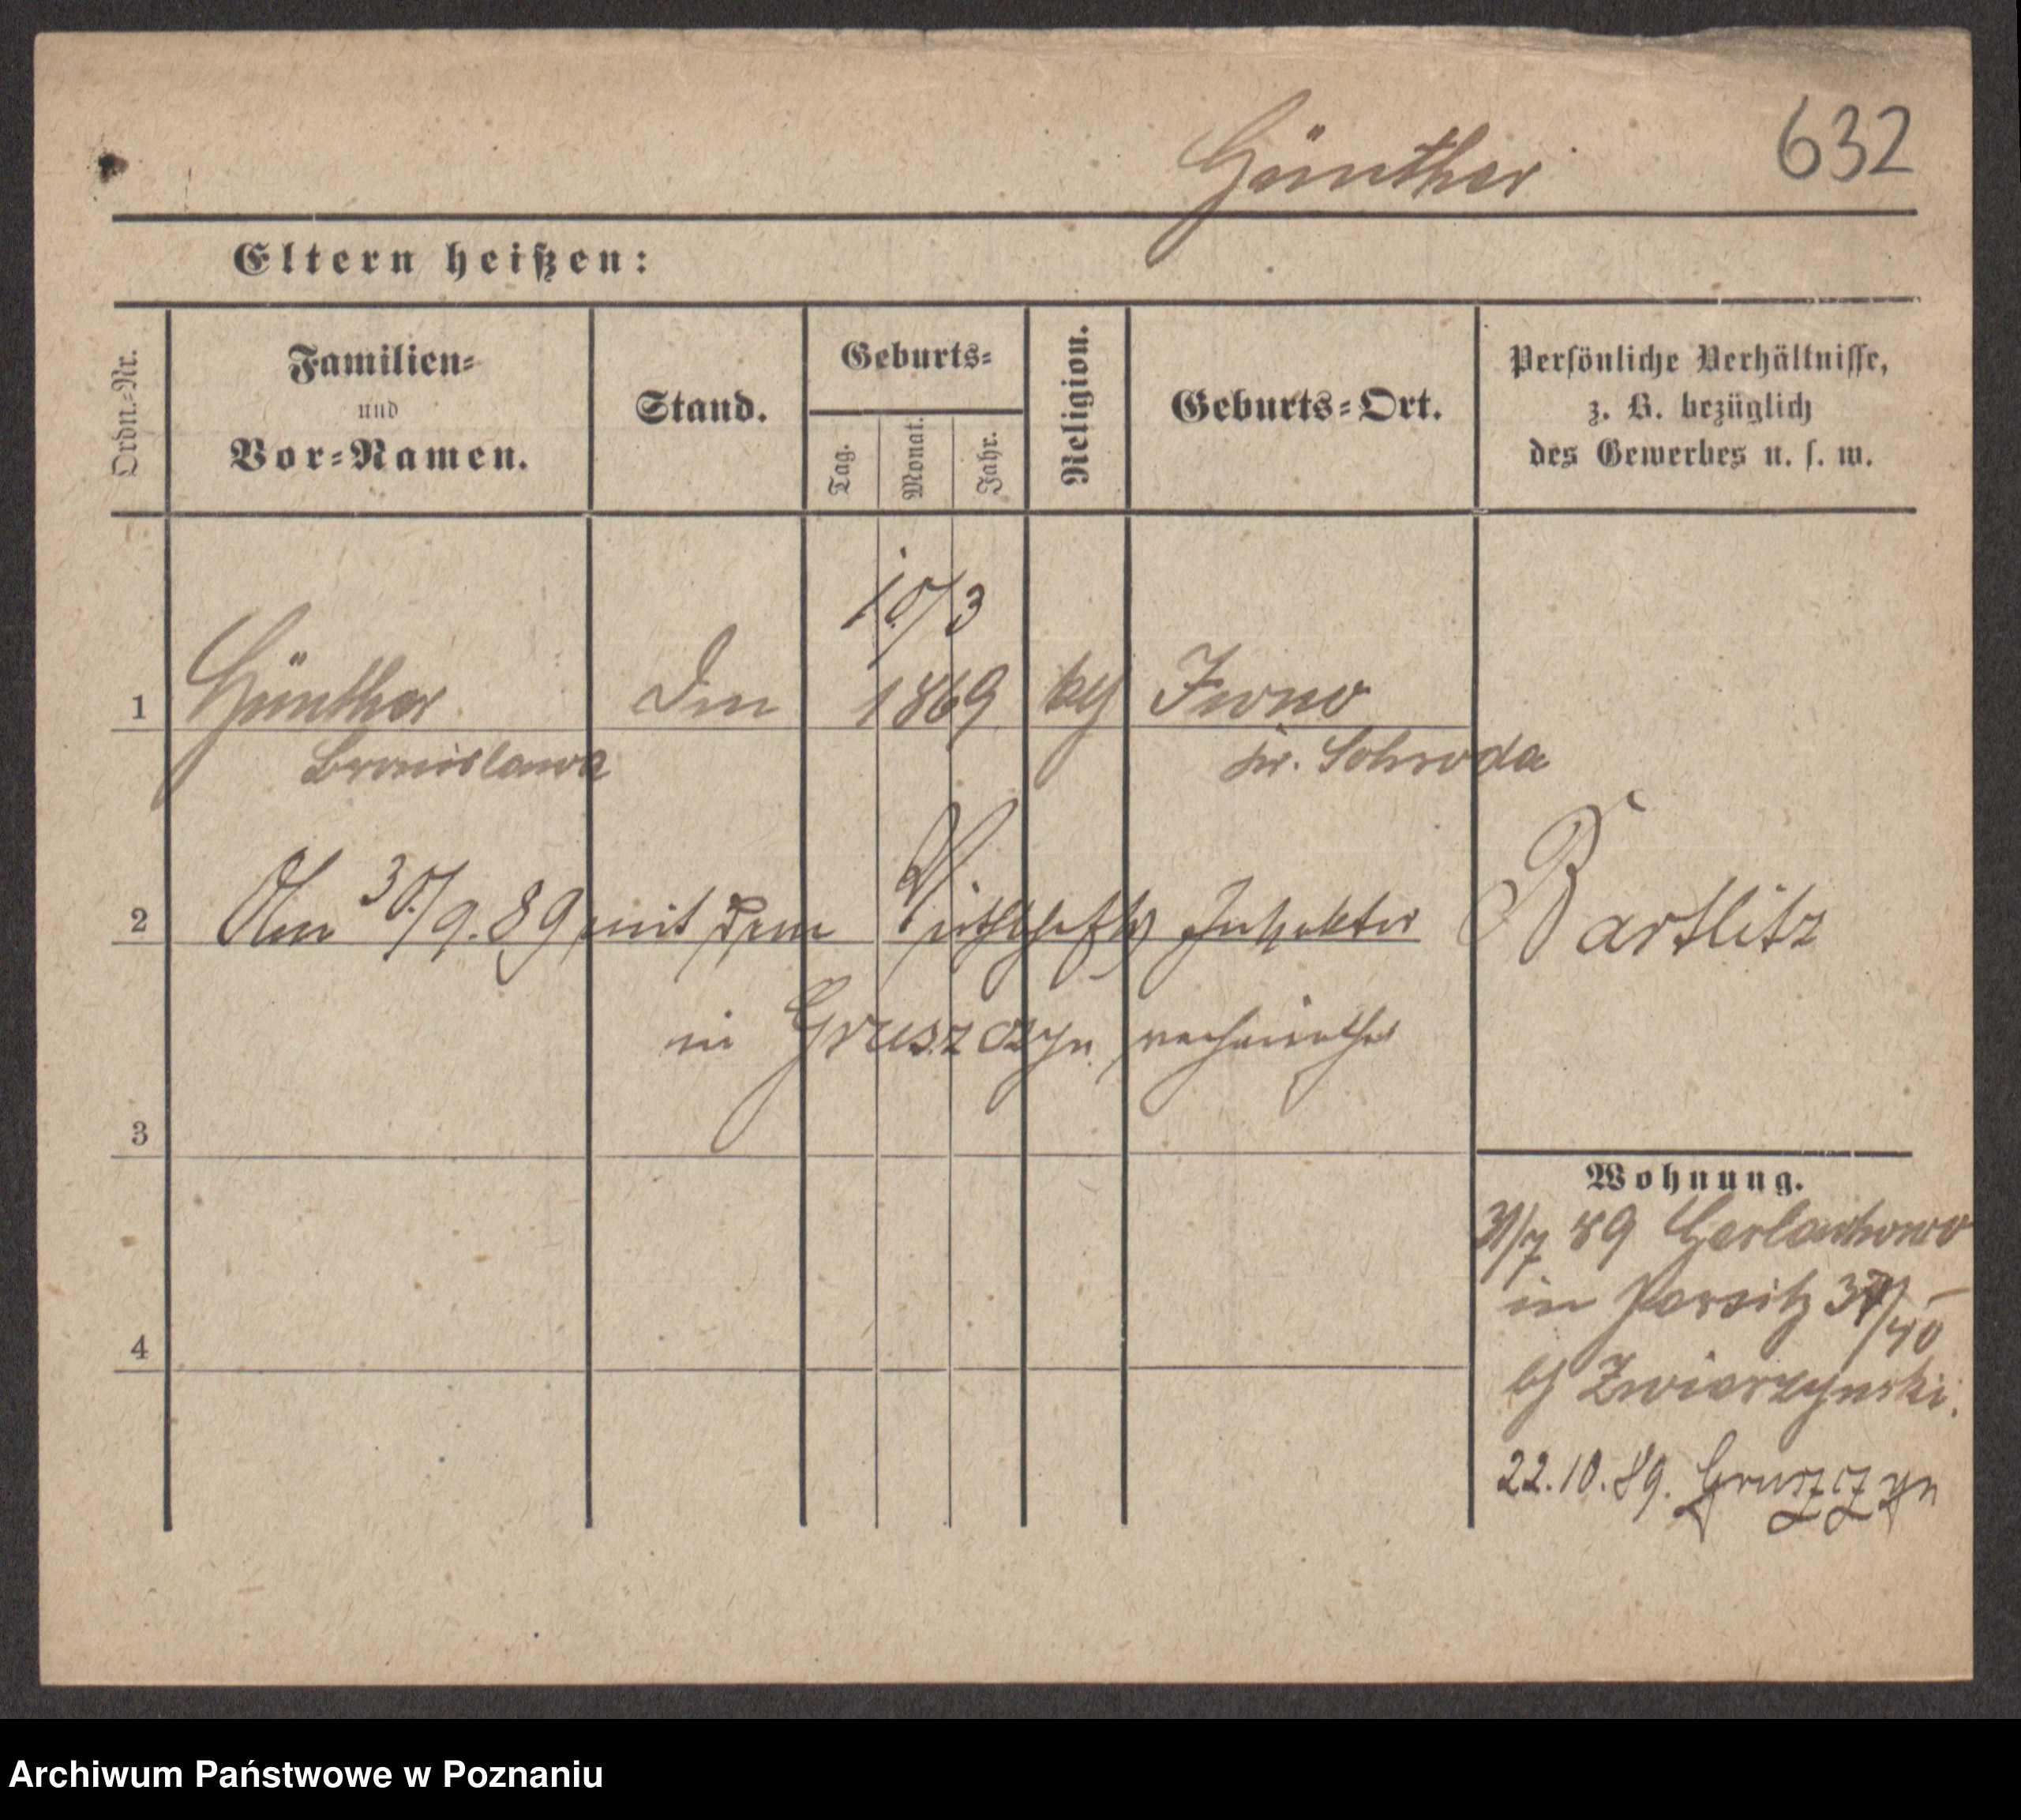 Günther 632
Eltern heißen:
Ordn.-Nr.
Familien-
und
Vor-Namen.
Stand.
Geburts-
Tag.
Monat.
Jahr.
Religion.
Geburts-Ort.
Persönliche Verhältnisse,
z. B. bezüglich
des Gewerbes u. s. w.
10/3
1 Günther 1869 Iwno
Bronislawa Kr. Schroda
2 Am 30/9.89 mit dem Wirthschafts Inspektor Bartlitz
in Gruszczyn verheirathet
3
Wohnung.
31/7 89 Gerlachowo
in Persitz /40
4
bei Zwierzynski.
22.10.89. Gruszczyn
Archiwum Państwowe w Poznaniu